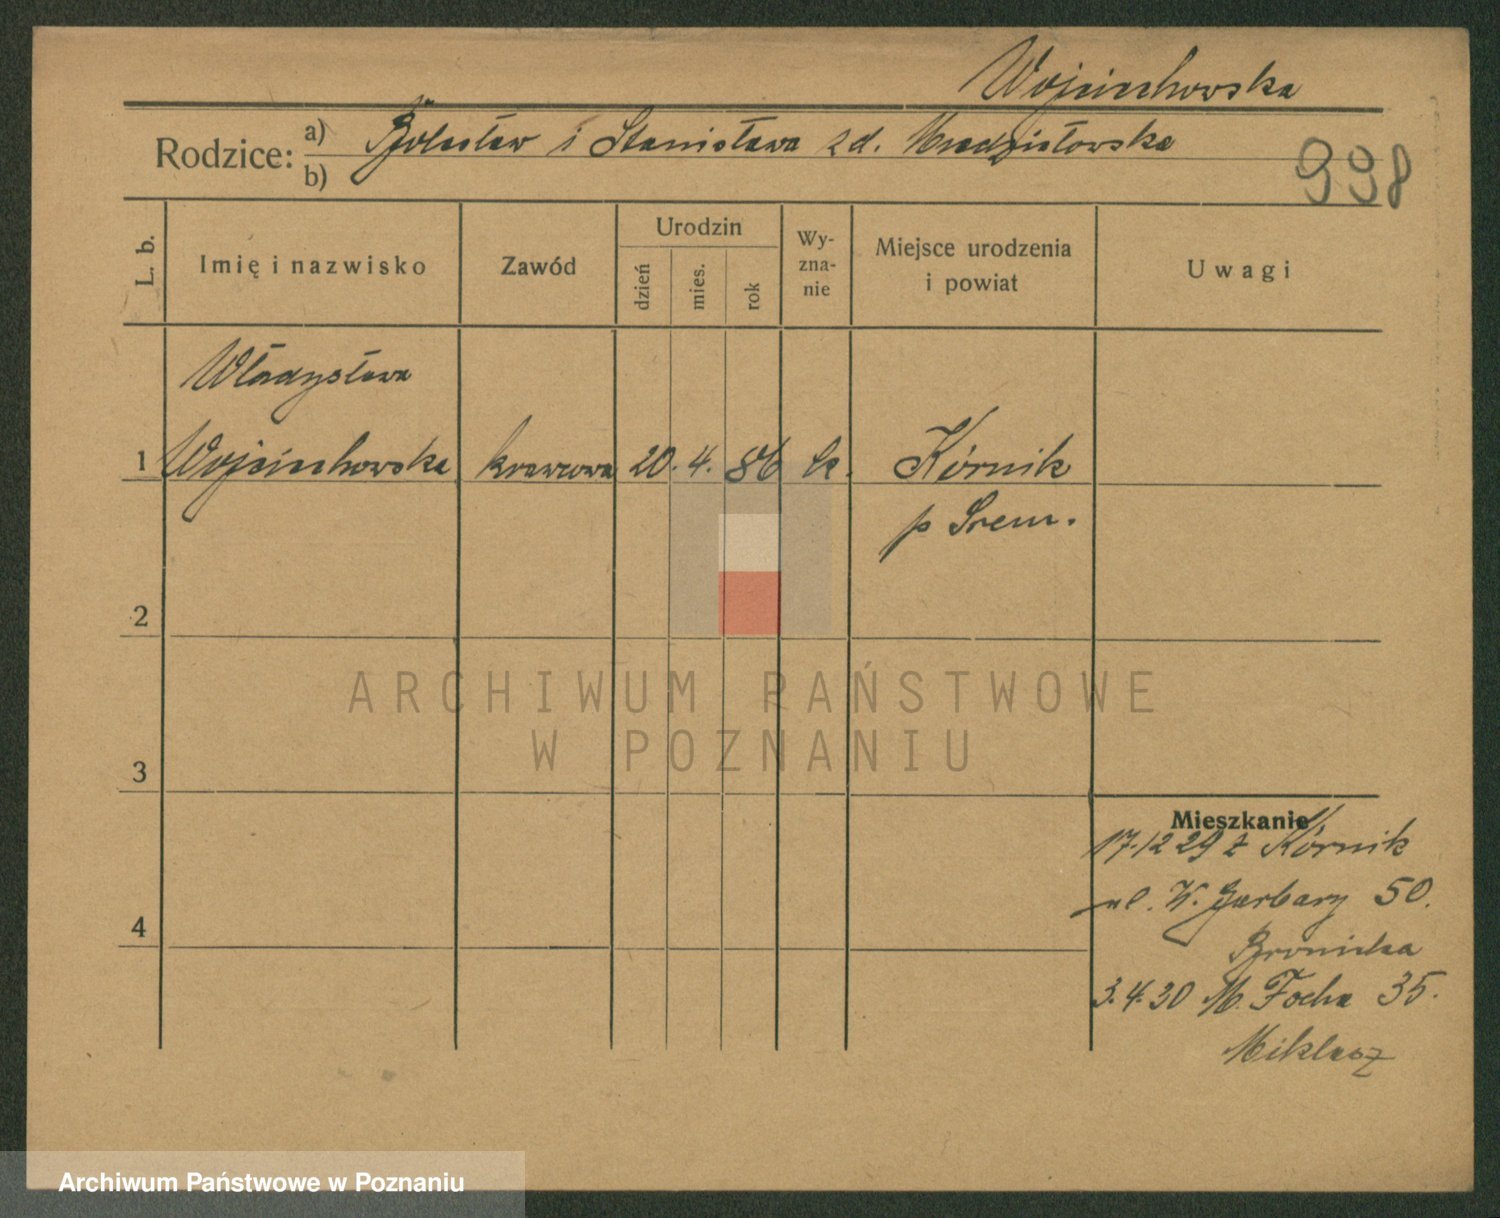 Wojciechowska
Rodzice: a) Bolesław i Stanisława z d.
b)
998
L. b.
Imię i nazwisko
Zawód
Urodzin
dzień
mies.
rok
Wy-
zna-
nie
Miejsce urodzenia
i powiat
Uwagi
Władysława
1 Wojciechowska krawcowa 20. 4. 86 k. Kórnik
p Śrem.
2
ARCHIWUM PAŃSTWOWE
W POZNANIU
3
Mieszkanie
17.12 29 z Kórnik
4
ul. W. Garbary 50.
Bronicka
3.4.30 M. Focha 35.
Miklasz
Archiwum Państwowe w Poznaniu